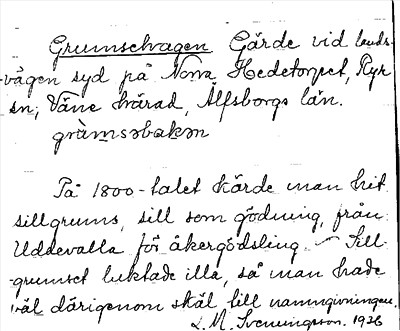 Grumselvagen Gärde vid lands-
vägen syd på Norra Hedetorpet, Ryr
sn, Väne härad, Älfsborgs län.
gràm̀səbakən
På 1800-talet körde man hit
sillgrums, sill som gödning, från
Uddevalla för åkergödsling. – Sill-
grumset luktade illa, så man hade
väl därigenom skäl till namngivningen.
L. M. Svenungson. 1926